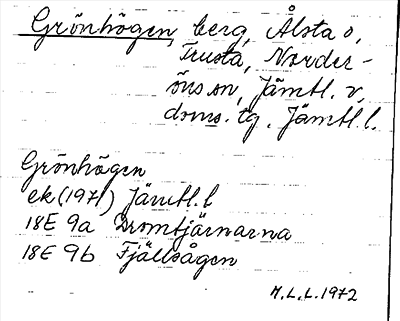 Grönhögen, berg, Ålsta o,
Trusta, Norder-
öns sn, Jämtl. v,
doms. tg. Jämtl. l.
Grönhögen
ek (1971) Jämtl. l
18E 9a Dromtjärnarna
18E 9b Fjällsågen
M.L.L. 1972